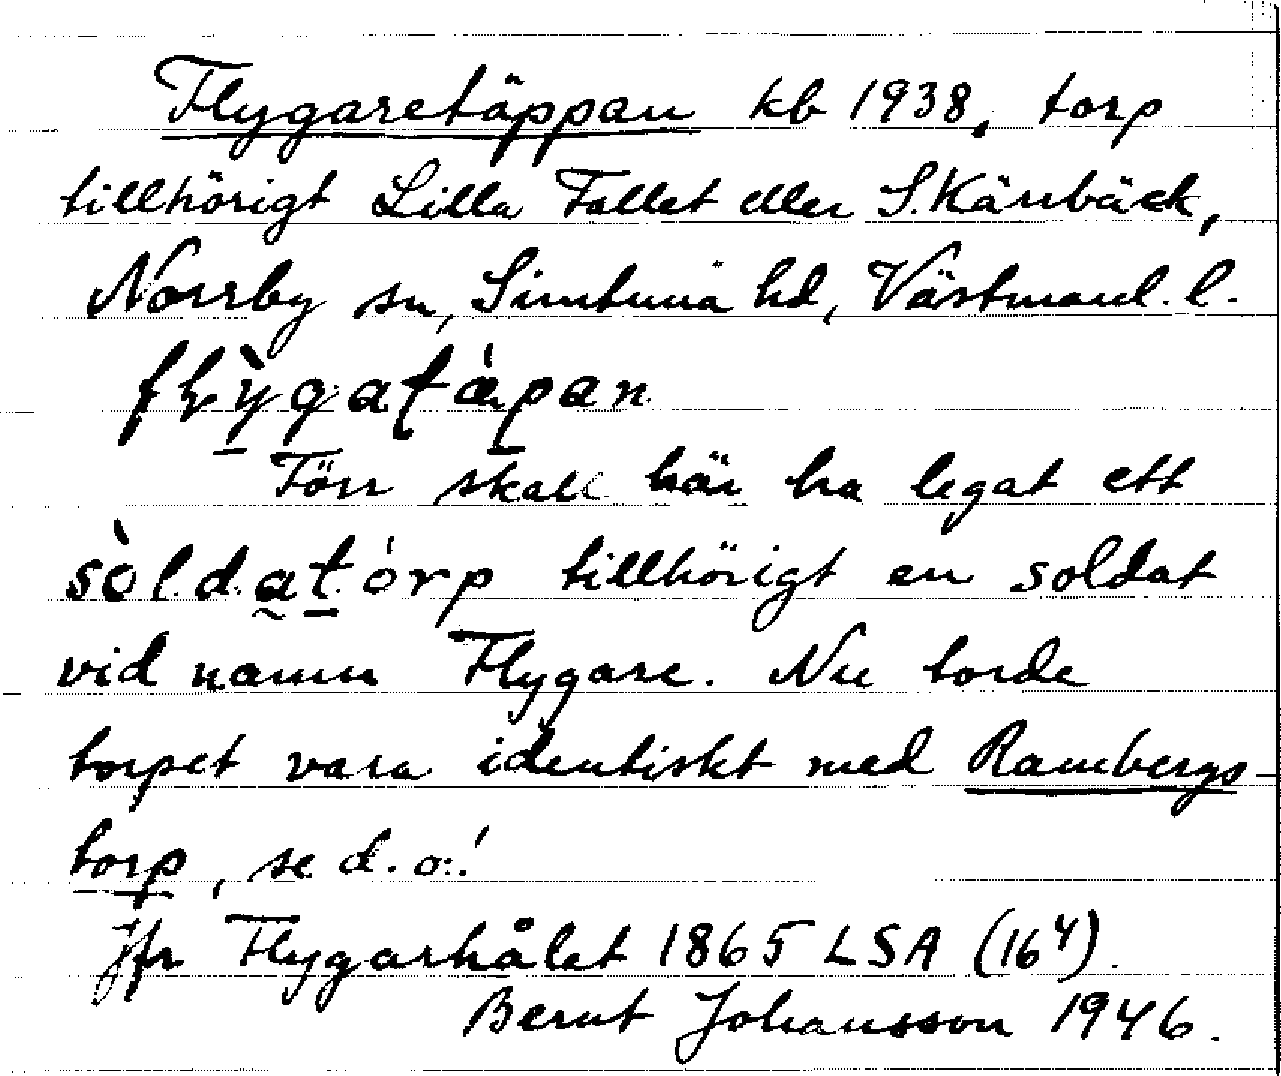 Flygaretäppan kb 1938, torp
tillhörigt Lilla Fallet eller S. Kärrbäck,
Norrby sn, Simtuna hd, Västmanl. l.
flỳgatȧ̀pan
Förr skall här ha legat ett
sòldatórp tillhörigt en soldat
vid namn Flygare. Nu torde
torpet vara identiskt med Rambergs-
torp, se d. o.!
Jfr Flygarhålet 1865 LSA (16⁴).
Bernt Johansson 1946.